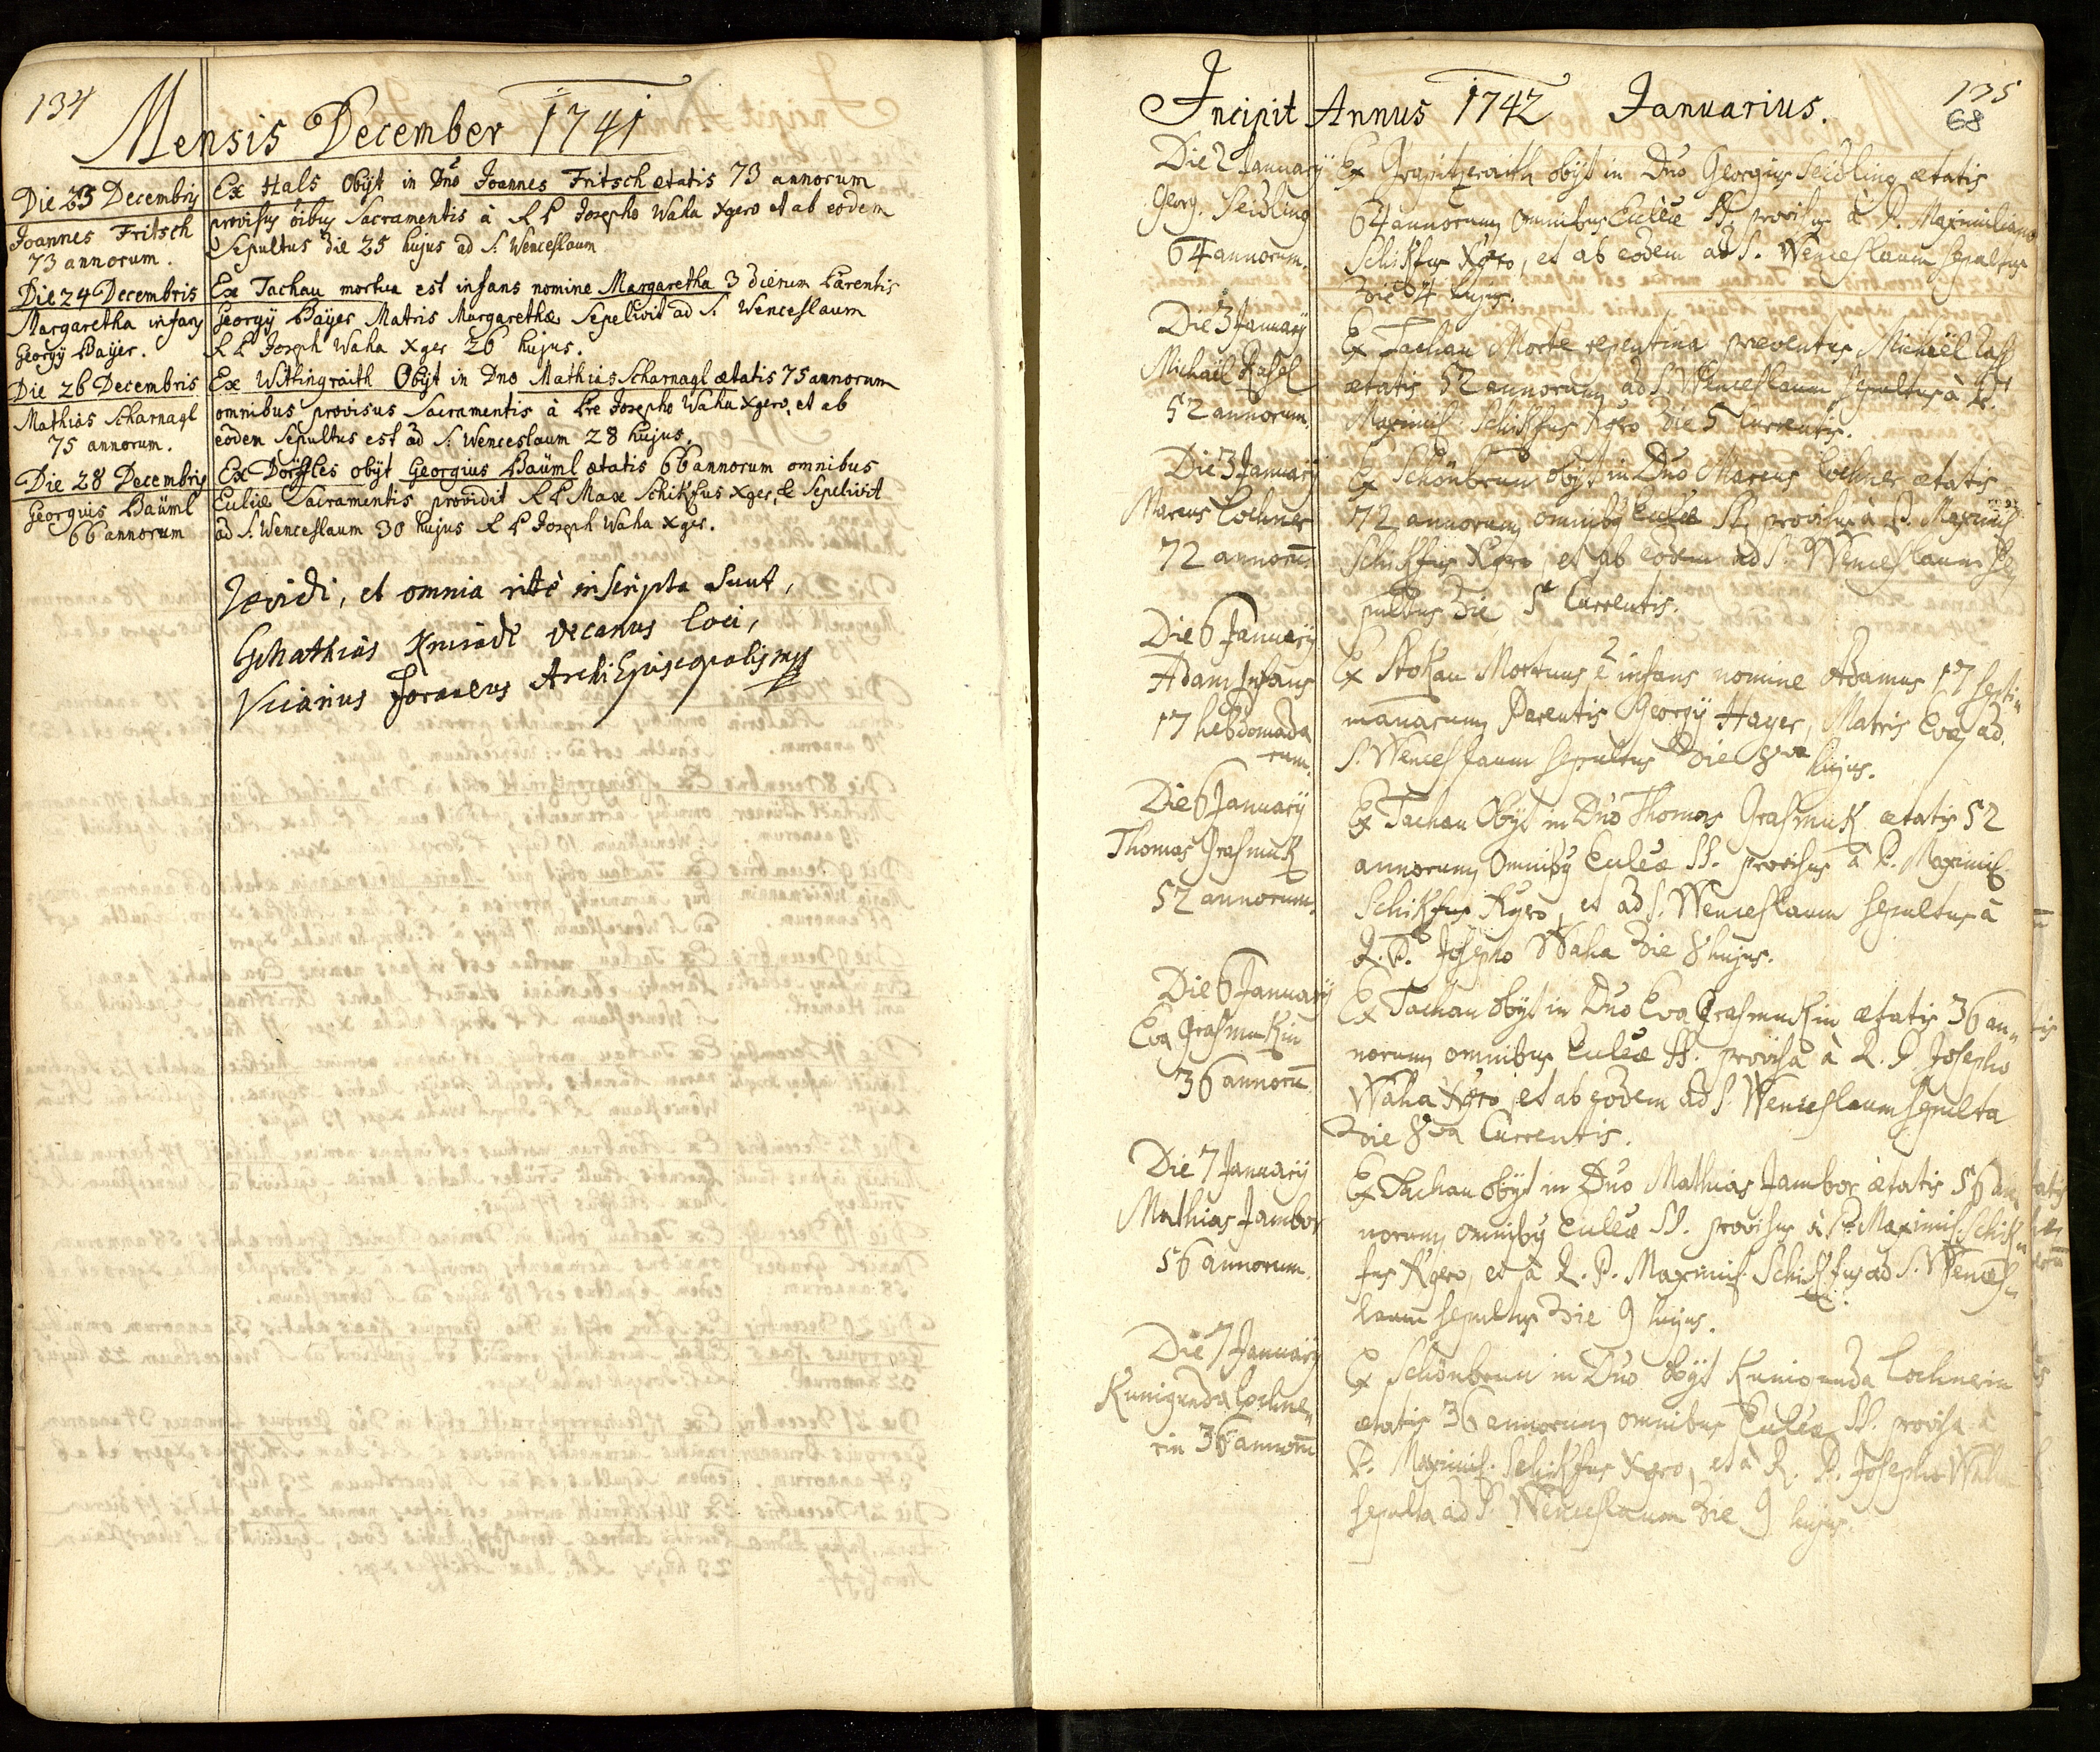 134
Mensis December 1741
Die 23 Decembris
Joannes Fritsch
73 annorum.
Ex Hals Obijt in Dno Joannes Fritsch ætatis 73 annorum
provisus oibus Sacramentis à R P Josepho Waha Xgero et ab eodem
Sepultus die 25 hujus ad S. Wenceslaum
Die 24 Decembris
Margaretha infans
Georgÿ Baÿer.
Ex Tachau mortua est infans nomine Margaretha 3 dierum Parentis
Georgÿ Baÿer Matris Margarethæ Sepelivit ad S. Wenceslaum
R P Joseph Waha Xger 26 hujus.
Die 26 Decembris
Mathias Scharnagl
75 annorum.
Ex Wittingraith Obijt in Dno Mathias Scharnagl ætatis 75 annorum
omnibus provisus Sacramentis à Pre Josepho Waha Xgero, et ab
eodem Sepultus est ad S. Wenceslaum 28 hujus.
Die 28 Decembris
Georgius Baüml
66 annorum
Ex Dörffles obijt Georgius Baüml ætatis 66 annorum omnibus
Eccliæ Sacramentis providit R P Max Schikfus Xger, & Sepelivit
ad S. Wenceslaum 30 hujus R P Joseph Waha Xger.
Revidi, et omnia ritè inscripta sunt,
Mathias decanus loci,
Vicarius Foraneus ArchiEpiscopalis
135
68
Incipit Annus 1742 Januarius.
Die 2 Januarÿ
Georg. Seidling
64 annorum.
Ex obijt in Dno Georgius Seidling ætatis
64 annorum omnibus Eccleæ SS. provisus à P. Maximiliano
Schikfus Xgero, et ab eodem ad S. Wenceslaum sepultus
die 4 hujus.
Die 3 Januarÿ
Michaël Rasel
52 annorum.
Ex Tachau Morte repentina præventus Michaël
ætatis 52 annorum ad S. Wenceslaum sepultus à P.
Maximil. Schikfus Xgero die 5 Currentis.
Die 3 Januarÿ
Marcus Lochner
72 annorum̄
Ex Schönbrun obijt in Dno Marcus Lochner ætatis
72 annorum omnibꝰ Eccleæ SS. provisus à P. Maximil.
Schikfus Xgero, et ab eodem ad S. Wenceslaum se
pultus die 5t Currentis.
Die 6 Januarÿ
Adam Infans
17 hebdomada
rum.
Ex Stokau Mortuus ē infans nomine Adamus 17 septi„
manarum Parentis Georgÿ Hayer, Matris Evæ ad
S. Wenceslaum sepultus die 8va hujus.
Die 6 Januarÿ
Thomas Grasmuk
52 annorum.
Ex Tachau Obijt in Dno Thomas Grasmuk ætatis 52
annorum Omnibꝰ Eccleæ SS. provisus à P. Maximil.
Schikfus Xgero, et ad S. Wenceslaum sepultus à
R. P. Josepho Waha die 8 hujus.
Die 6 Januarÿ
Eva Grasmukin
36 annorū
Ex Tachau obijt in Dno Eva Grasmukin ætatis 36 an„
norum omnibus Eccleæ SS. provisa à R. P. Josepho
Waha Xgero, et ab eodem ad S. Wenceslaum sepulta
die 8va Currentis.
Die 7 Januarÿ
Mathias Jambor
56 annorum.
Ex Tachau obijt in Dno Mathias Jambor ætatis 56 an„
norum omnibꝰ Eccleæ SS. provisus à P. Maximil. Schik„
fus Xgero, et à R. P. Maximil. Schikfus ad S. Wences„
laum sepultus die 9 hujus.
Die 7 Januarÿ
Kunigunda Lochne„
rin 36 annorū
Ex Schönbrun in Dno obijt Kunigunda Lochnerin
ætatis 36 annorum omnibus Eccleæ SS. provisa à
P. Maximil. Schikfus Xgero, et à R. P. Josepho Waha
sepulta ad S. Wenceslaum die 9 hujus.